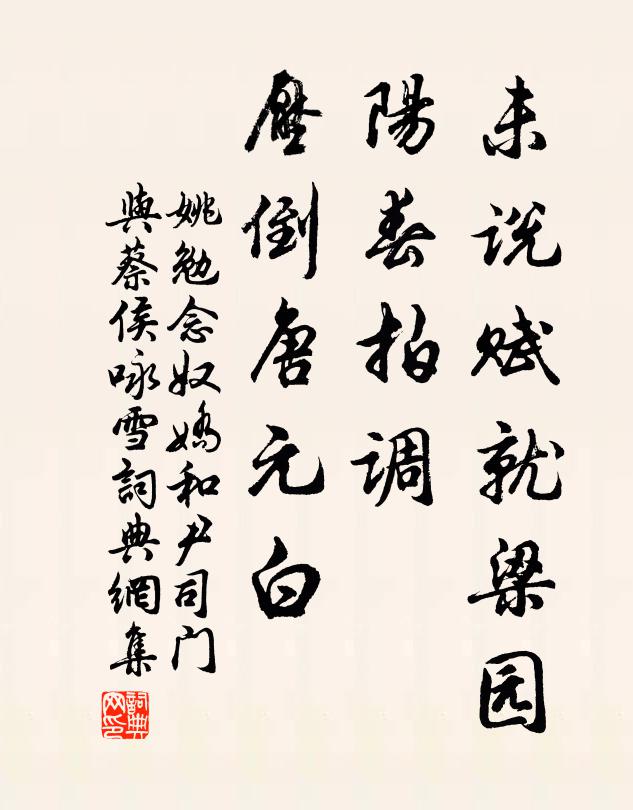 未说赋就梁园
陽春拍调
壓倒唐元白
姚勉念奴嬌和尹司门
與蔡侯咏雪詞典網集
詞典
网印